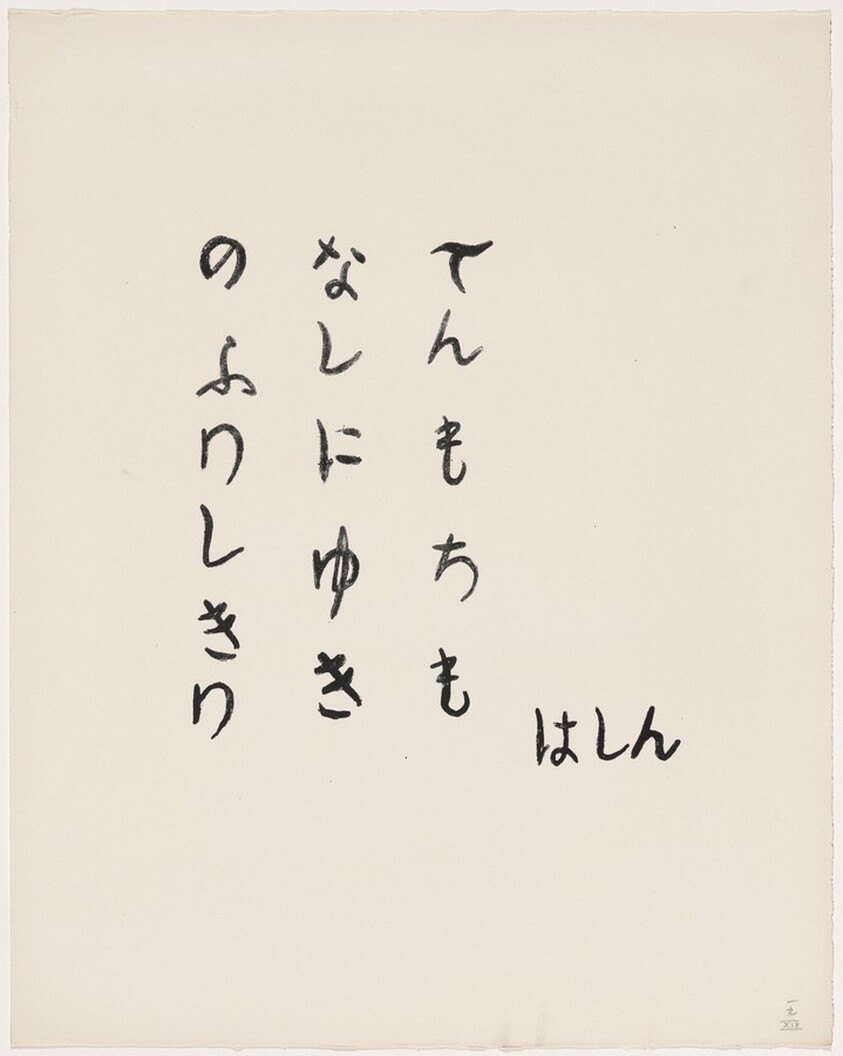 てんもちも
なしにゆき
のふりしきり
はしん
一九
XIX